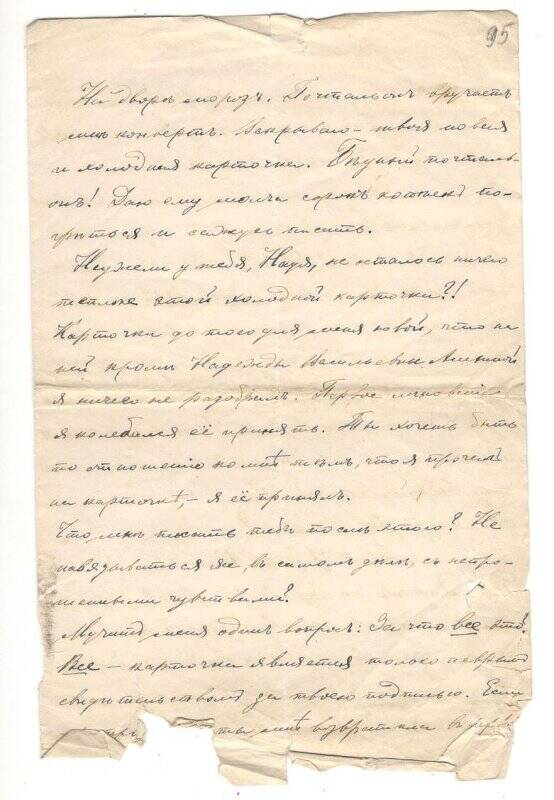 95
На дворѣ морозъ. Почтальонъ вручаетъ
мнѣ конвертъ. Вскрываю – твоя новая
и холодная карточка. Бѣдный почталь-
онъ! Даю ему молча сорокъ копѣекъ по-
грѣться и сажусь писать.
Неужели у тебя, Надя, не осталось ничего
теплѣе этой холодной карточки?!
Карточки до того для меня новой, что на
ней кромѣ Надежды Васильевны
я ничего не разобралъ. Первое мгновеніе
я колебался её принять. Ты хочешь быть
по отношенію ко мнѣ тѣмъ, что я прочелъ
на карточкѣ, – я её принялъ.
Что мнѣ писать тебѣ послѣ этого? Не
навязываться же, въ самомъ дѣлѣ, съ непро-
шенными чувствами?
Мучитъ меня одинъ вопросъ: За что все это?
Все – карточка является только
свидѣтельствомъ за твоею подписью. Если
ты мнѣ возвратила